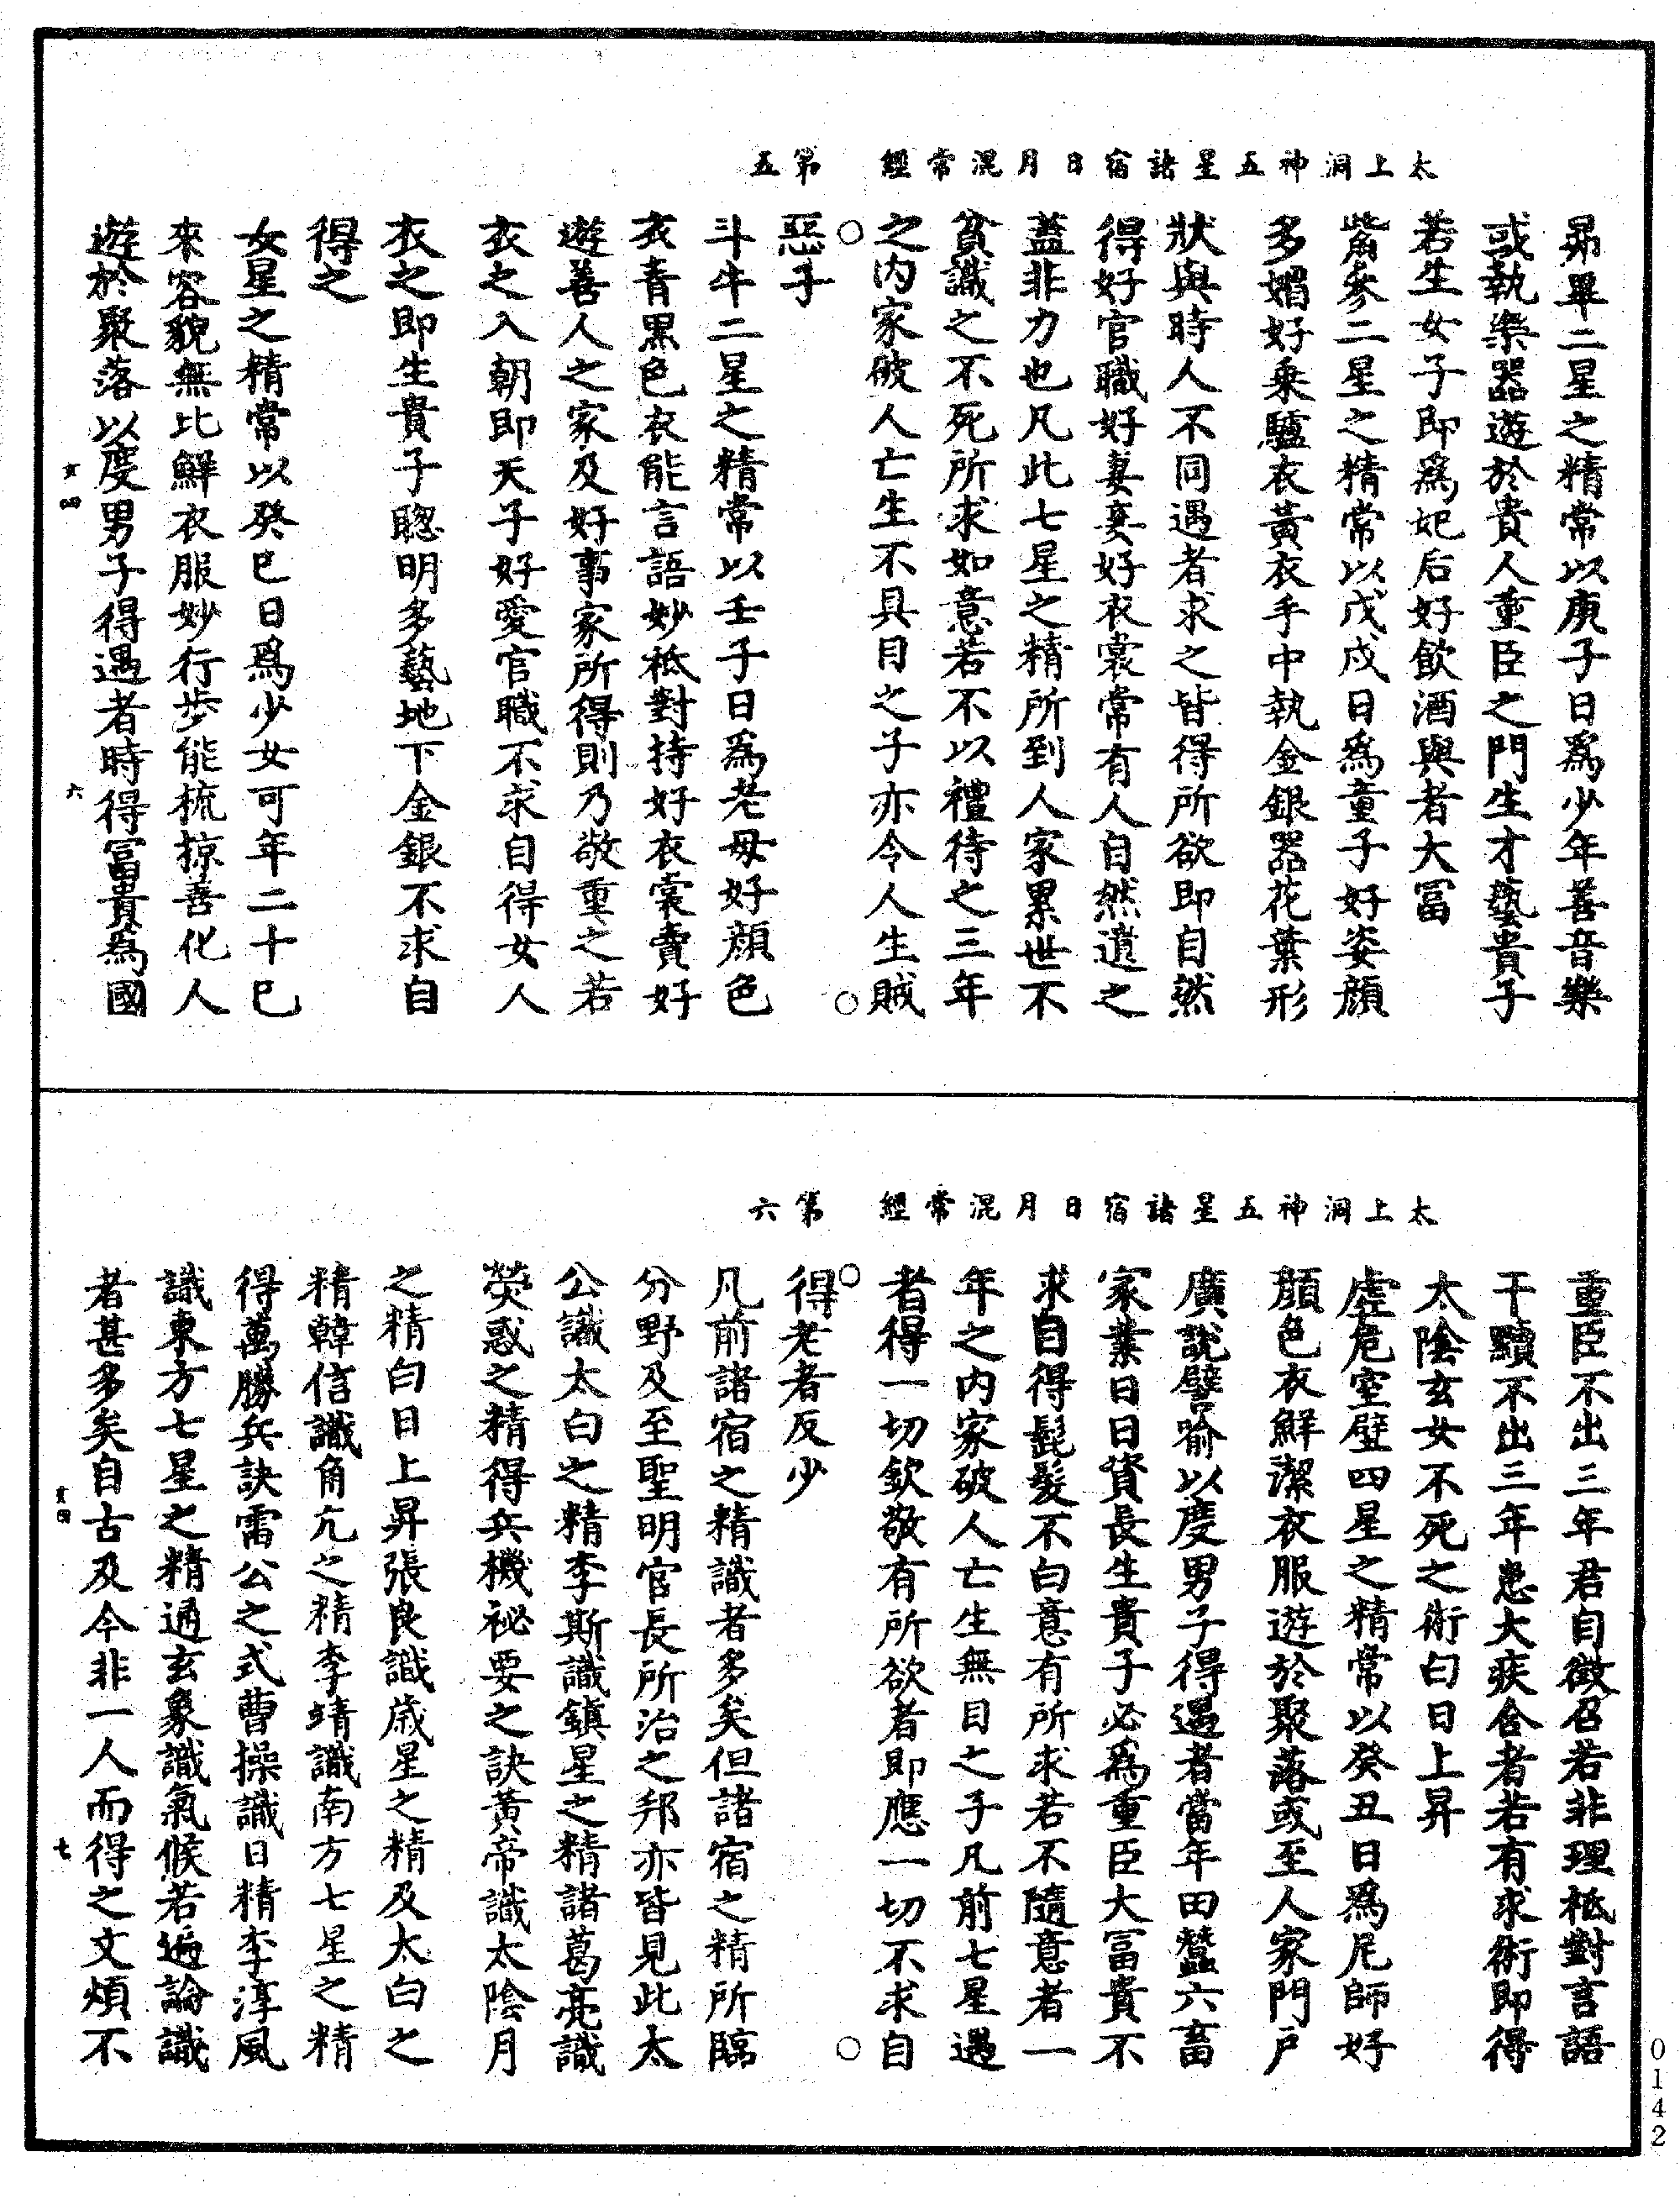 太上洞神五星諸宿日月混常經 第五
昴畢二星之精常以庚子日爲少年善音樂
或執樂器遊於貴人重臣之門生才藝貴子
若生女子即爲妃后好飲酒與者大冨
觜參二星之精常以戊戌日爲童子好姿顔
多媚好乗驢衣黃衣手中執金銀器花葉形
狀與時人不同遇者求之皆得所欲即自然
得好官職好妻妾好衣裳常有人自然遺之
蓋非力也凡此七星之精所到人家累世不
貧識之不死所求如意若不以禮待之三年
之内家破人亡生不具目之子亦令人生賊
惡子
斗牛二星之精常以壬子日爲老母好顔色
衣青黒色衣能言語妙秪對持好衣裳賣好
遊善人之家及好事家所得則乃敬重之若
衣之入朝即天子好愛官職不求自得女人
衣之即生貴子聰明多藝地下金銀不求自
得之
女星之精常以癸巳日爲少女可年二十巳
來容貌無比鮮衣服妙行步能梳掠善化人
遊於聚落以度男子得遇者時得冨貴爲國
六
太上洞神五星諸宿日月混常經 第六
重臣不出三年君自徵召若非理秪對言語
干黷不出三年患大疾合者若有求術即得
太陰玄女不死之術白日上昇
虚危室壁四星之精常以癸丑日爲尼師好
顔色衣鮮潔衣服遊於聚落或至人家門戸
廣說譬喻以度男子得遇者當年田蠶六畜
家業日日資長生貴子必爲重臣大冨貴不
求自得髭髮不白意有所求若不隨意者一
年之内家破人亡生無目之子凡前七星遇
者得一切欽敬有所欲者即應一切不求自
得老者反少
凡前諸宿之精識者多矣但諸宿之精所臨
分野及至聖明官長所治之邦亦皆見此太
公識太白之精李斯識鎮星之精諸葛亮識
熒惑之精得兵機祕要之訣黃帝識太陰月
之精白日上昇張良識歳星之精及太白之
精韓信識角亢之精李靖識南方七星之精
得萬勝兵訣雷公之式曹操識日精李淳風
識東方七星之精通玄象識氣候若遍論識
者甚多矣自古及今非一人而得之文煩不
七
0142